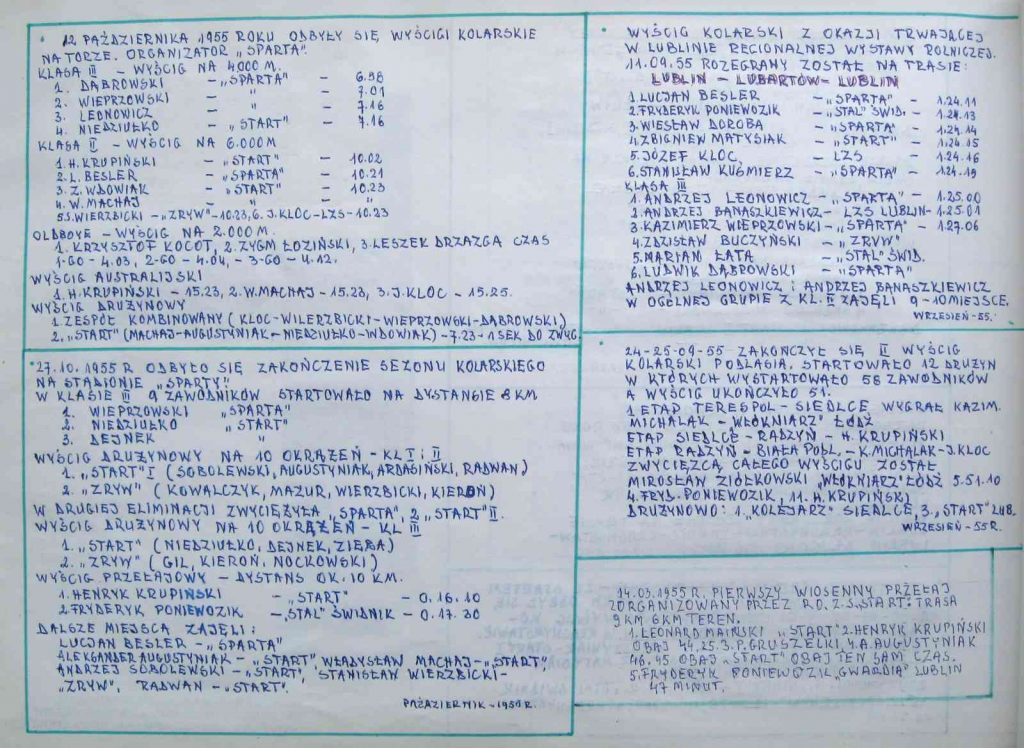 12 PAŹDZIERNIKA 1955 ROKU ODBYŁY SIĘ WYŚCIGI KOLARSKIE
NA TORZE. ORGANIZATOR „SPARTA".
KLASA III – WYŚCIG NA 4000 M.
1. DĄBROWSKI – „SPARTA" – 6.58
2. WIEPRZOWSKI – " – 7.01
3. LEONOWICZ – " – 7.16
4. NIEDZIUŁKO – „START" – 7.16
KLASA II – WYŚCIG NA 6.000 M
1. H. KRUPIŃSKI – „START" – 10.02
2. L. BESLER – „SPARTA" – 10.21
3. Z. WDOWIAK – „START" – 10.23
4. W. MACHAJ – " – "
5. S. WIERZBICKI – „ZRYW" – 10.23, 6. J. KLOC – LZS – 10.23
OLDBOYE – WYŚCIG NA 2.000 M.
1. KRZYSZTOF KOCOT, 2. ZYGM ŁOZIŃSKI, 3. LESZEK DRZAZGA CZAS
1-GO – 4.03, 2-GO – 4.04, – 3-GO – 4.12.
WYŚCIG AUSTRALIJSKI
1. H. KRUPIŃSKI – 15.23, 2. W. MACHAJ – 15.23, 3. J. KLOC – 15.25.
WYŚCIG DRUŻYNOWY
1. ZESPÓŁ KOMBINOWANY (KLOC – WILERZBICKI – WIEPRZOWSKI – DĄBROWSKI)
2. „START" (MACHAJ – AUGUSTYNIAK – NIEDZIUŁKO – WDOWIAK) – 7.23 – 1 SEK DO ZWYC.
27.10.1955 R ODBYŁO SIĘ ZAKOŃCZENIE SEZONU KOLARSKIEGO
NA STADIONIE „SPARTY".
W KLASIE III 9 ZAWODNIKÓW STARTOWAŁO NA DYSTANSIE 8 KM
1. WIEPRZOWSKI „SPARTA"
2. NIEDZIUŁKO „START"
3. DEJNEK "
WYŚCIG DRUŻYNOWY NA 10 OKRĄŻEŃ – KL I i II
1. „START" I (SOBOLEWSKI, AUGUSTYNIAK, ARDASIŃSKI, RADWAN)
2. „ZRYW" (KOWALCZYK, MAZUR, WIERZBICKI, KIEROŃ)
W DRUGIEJ ELIMINACJI ZWYCIĘŻYŁA „SPARTA", 2 „START" II.
WYŚCIG DRUŻYNOWY NA 10 OKRĄŻEŃ – KL III
1. „START" (NIEDZIUŁKO, DEJNEK, ZIĘBA)
2. „ZRYW" (GIL, KIEROŃ, NOCKOWSKI)
WYŚCIG PRZEŁAJOWY – DYSTANS OK. 10 KM.
1. HENRYK KRUPIŃSKI – „START" – 0.16.10
2. FRYDERYK PONIEWOZIK – „STAL" ŚWIDNIK – 0.17.30
DALSZE MIEJSCA ZAJĘLI:
LUCJAN BESLER – „SPARTA"
ALEKSANDER AUGUSTYNIAK – „START" WŁADYSŁAW MACHAJ – „START",
ANDRZEJ SOBOLEWSKI – „START", STANISŁAW WIERZBICKI –
„ZRYW", RADWAN – „START".
PAŹDZIERNIK – R.
WYŚCIG KOLARSKI Z OKAZJI TRWAJĄCEJ
W LUBLINIE REGIONALNEJ WYSTAWY ROLNICZEJ.
11.09.55 ROZEGRANY ZOSTAŁ NA TRASIE:
LUBLIN – LUBARTÓW – LUBLIN
1. LUCJAN BESLER – „SPARTA" – 1.24.11
2. FRYDERYK PONIEWOZIK – „STAL" ŚWID. – 1.24.13
3. WIESŁAW DOROBA – „SPARTA" – 1.24.14
4. ZBIGNIEW MATYSIAK – „START" – 1.24.15
5. JÓZEF KLOC – LZS – 1.24.16
6. STANISŁAW KUŚMIERZ – „SPARTA" – 1.24.19
KLASA III
1. ANDRZEJ LEONOWICZ – „SPARTA" – 1.25.00
2. ANDRZEJ BANASZKIEWICZ – LZS LUBLIN – 1.25.01
3. KAZIMIERZ WIEPRZOWSKI – „SPARTA" – 1.27.06
4. ZDZISŁAW BUCZYŃSKI – „ZRYW"
5. MARIAN ŁATA – „STAL" ŚWID.
6. LUDWIK DĄBROWSKI – „SPARTA"
ANDRZEJ LEONOWICZ i ANDRZEJ BANASZKIEWICZ
W OGÓLNEJ GRUPIE Z KL. II ZAJĘLI 9 – 10 MIEJSCE.
WRZESIEŃ – 55.
24-25-09-55 ZAKOŃCZYŁ SIĘ II WYŚCIG
KOLARSKI PODLASIA. STARTOWAŁO 12 DRUŻYN
W KTÓRYCH WYSTARTOWAŁO 58 ZAWODNIKÓW
A WYŚCIG UKOŃCZYŁO 51.
1 ETAP TERESPOL – SIEDLCE WYGRAŁ KAZIM.
MICHALAK – WŁÓKNIARZ" ŁÓDŹ
ETAP SIEDLCE – RADZYŃ – H. KRUPIŃSKI
ETAP RADZYŃ – BIAŁA PODL. – K. MICHALAK – J. KLOC
ZWYCIĘZCĄ CAŁEGO WYŚCIGU ZOSTAŁ
MIROSŁAW ZIÓŁKOWSKI „WŁÓKNIARZ" ŁÓDŹ 5.51.10
4. FRYD. PONIEWOZIK, 11. H. KRUPIŃSKI
DRUŻYNOWO: 1. „KOLEJARZ" SIEDLCE, 3. „START" LUB.
WRZESIEŃ – 55 R.
14.03.1955 R. PIERWSZY WIOSENNY PRZEŁAJ
ZORGANIZOWANY PRZEZ R.O. Z.S. „START". TRASA
9 KM 6 KM TEREN.
1. LEONARD MAIŃSKI „START" 2. HENRYK KRUPIŃSKI
OBAJ 44.25. 3. P. GRUSZELKI, 4. A. AUGUSTYNIAK
46.45 OBAJ „START" OBAJ TEN SAM CZAS.
5. FRYDERYK PONIEWOZIK „GWARDIA" LUBLIN
47 MINUT.